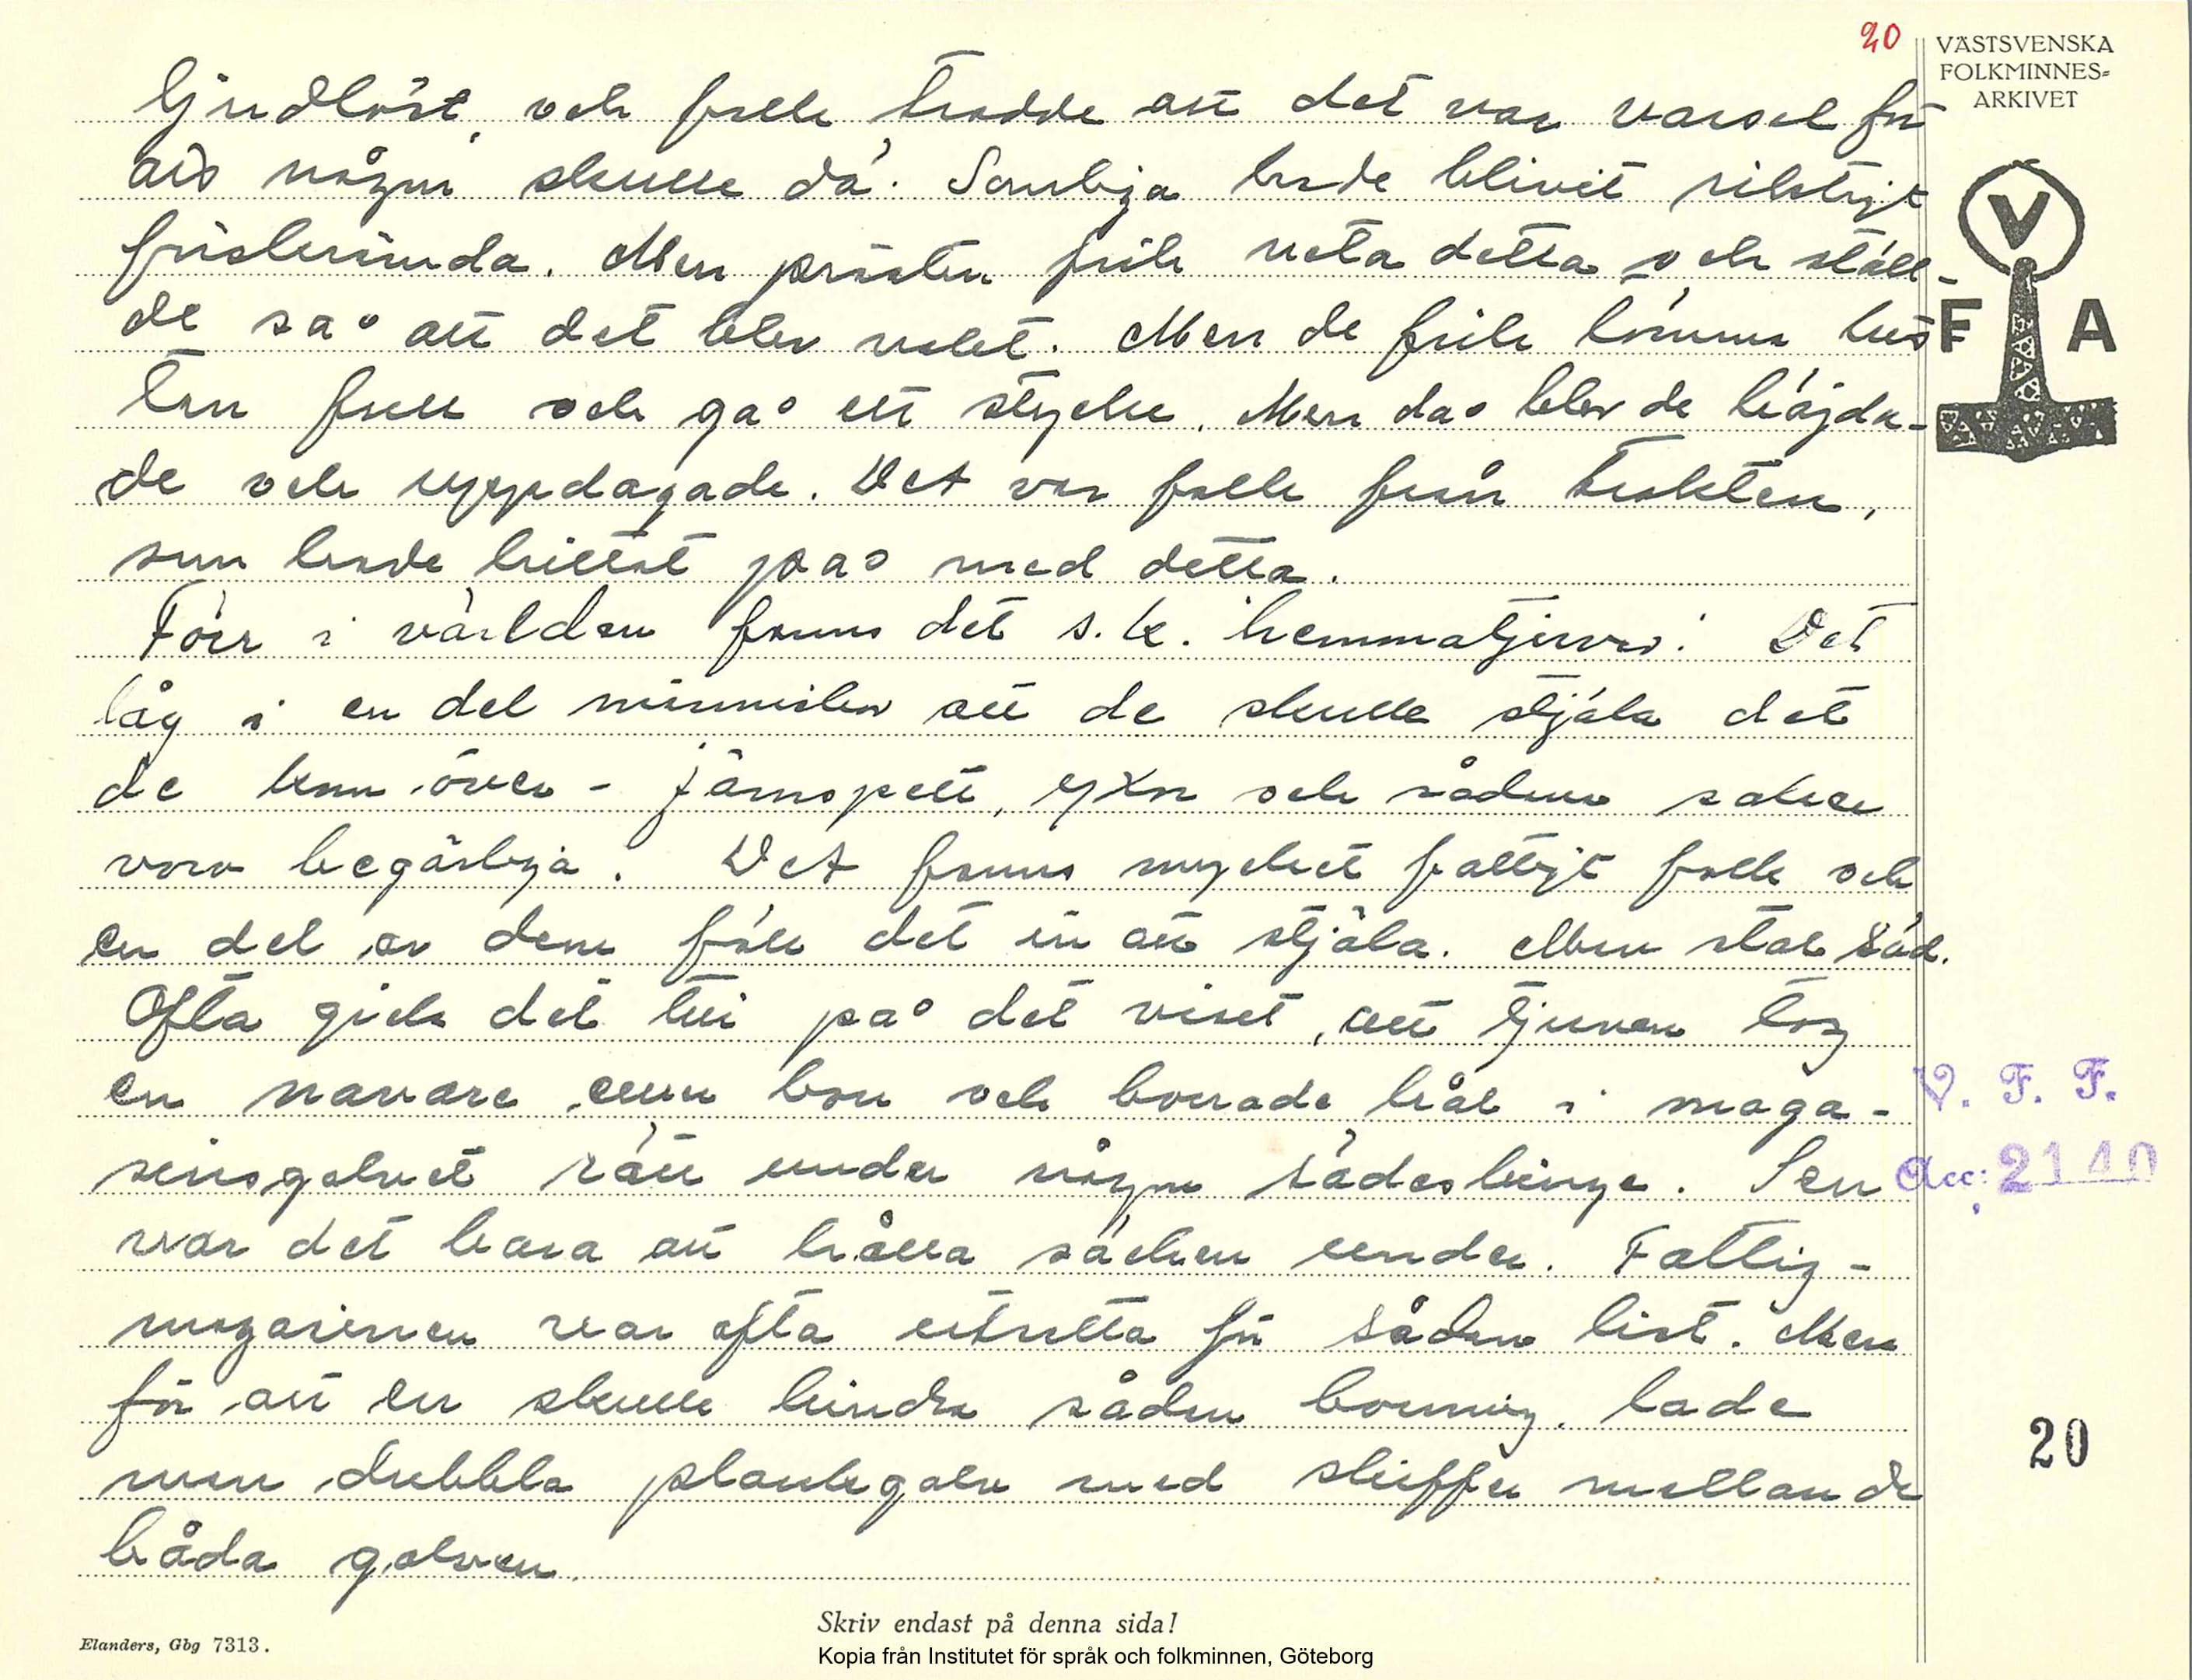 20
VÄSTSVENSKA
FOLKMINNES=
ARKIVET
ljudlöst, och folk trodde att det var varsel för
att någon skulle dö. Somliga hade blivit riktigt
förskrämda. Men prästen fick veta detta och ställ-
de så att det blev vaket. Men de fick komma
full och gå ett stycke. Men då blev de hejda-
de och uppdagade. Det var folk från trakten,
som hade hittat på med detta.
Förr i världen fanns det s.k. hemmatjuvar. Det
låg i en del människor att de skulle stjäla det
de kom över - järnspett, yxor och sådana saker
voro begärliga. Det fanns mycket fattigt folk och
en del av dem föll det in att stjäla. Man stal säd.
Ofta gick det till på det viset, att tjuven tog
en navare och borrade hål i maga-
sinsgolvet rätt under någon sädesbinge. Sen
var det bara att hålla säcken under. Fattig-
magasinen var ofta utsatta för sådan list. Men
för att en skulle hindra sådan borrning, lade
man dubbla plankgolv med skiffer mellan de
båda golven.
V
F A
V. F. F.
Acc: 2140
20
Skriv endast på denna sida!
Elanders, Gbg 7313.
Kopia från Institutet för språk och folkminnen, Göteborg